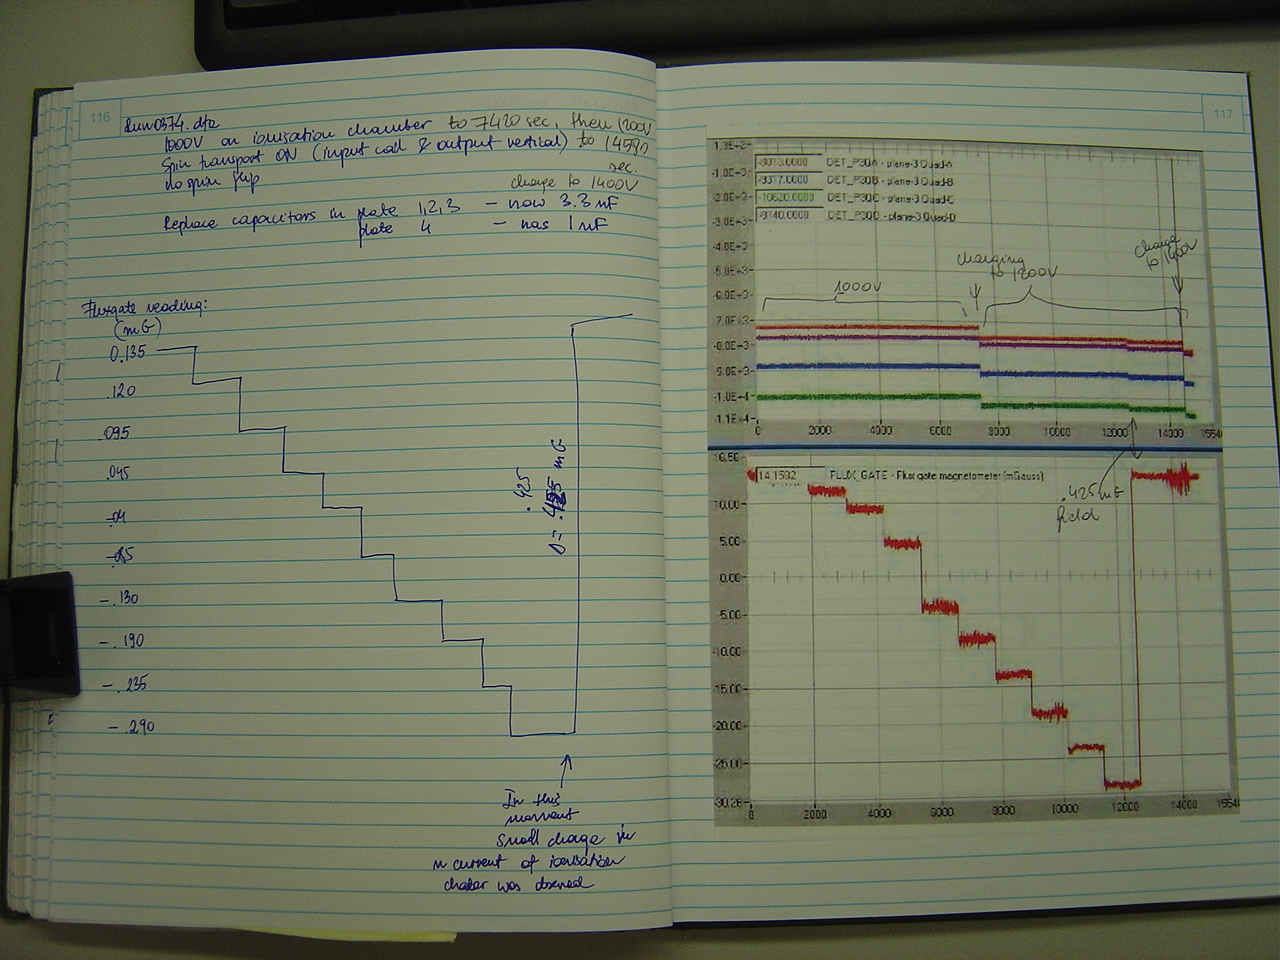 116
Run0374.dta
1000V on ionisation chamber to 7420 sec, then 1200V
Spin transport ON (input coil & output vertical) to 14590
sec.
No spin flip
charge to 1400V
Replace capacitors in plate 1,2,3 – now 3.3 nF
plate 4 – has 1 nF
Fluxgate reading:
(mG)
0.135
.120
.095
.045
-.04
-.130
-.190
-.235
-.290
.425
mG
In this
moment
Small change in
n current of ionisation
chaber was observed
117
1,3E+2
-1,0E+3
-2,0E+3
-3,0E+3
-5,0E+3
-6,0E+3
-7,0E+3
-8,0E+3
-9,0E+3
-1,0E+4
-1,1E+4
-8013.0000 DET_P3QA - plane-3 Quad-A
-8317.0000 DET_P3QB - plane-3 Quad-B
-10620.0000 DET_P3QC - plane-3 Quad-C
-9140.0000 DET_P3QD - plane-3 Quad-D
1000V
charging
to 1200V
charge
to 1400V
0 2000 4000 6000 8000 10000 12000 14000 1554
16,50
14,1532 FLUX_GATE - Flux gate magnetometer (mGauss)
.425 mG
field
10,00
5,00
0,00
-5,00
-10,00
-15,00
-20,00
-25,00
-30,26
0 2000 4000 6000 8000 10000 12000 14000 1554